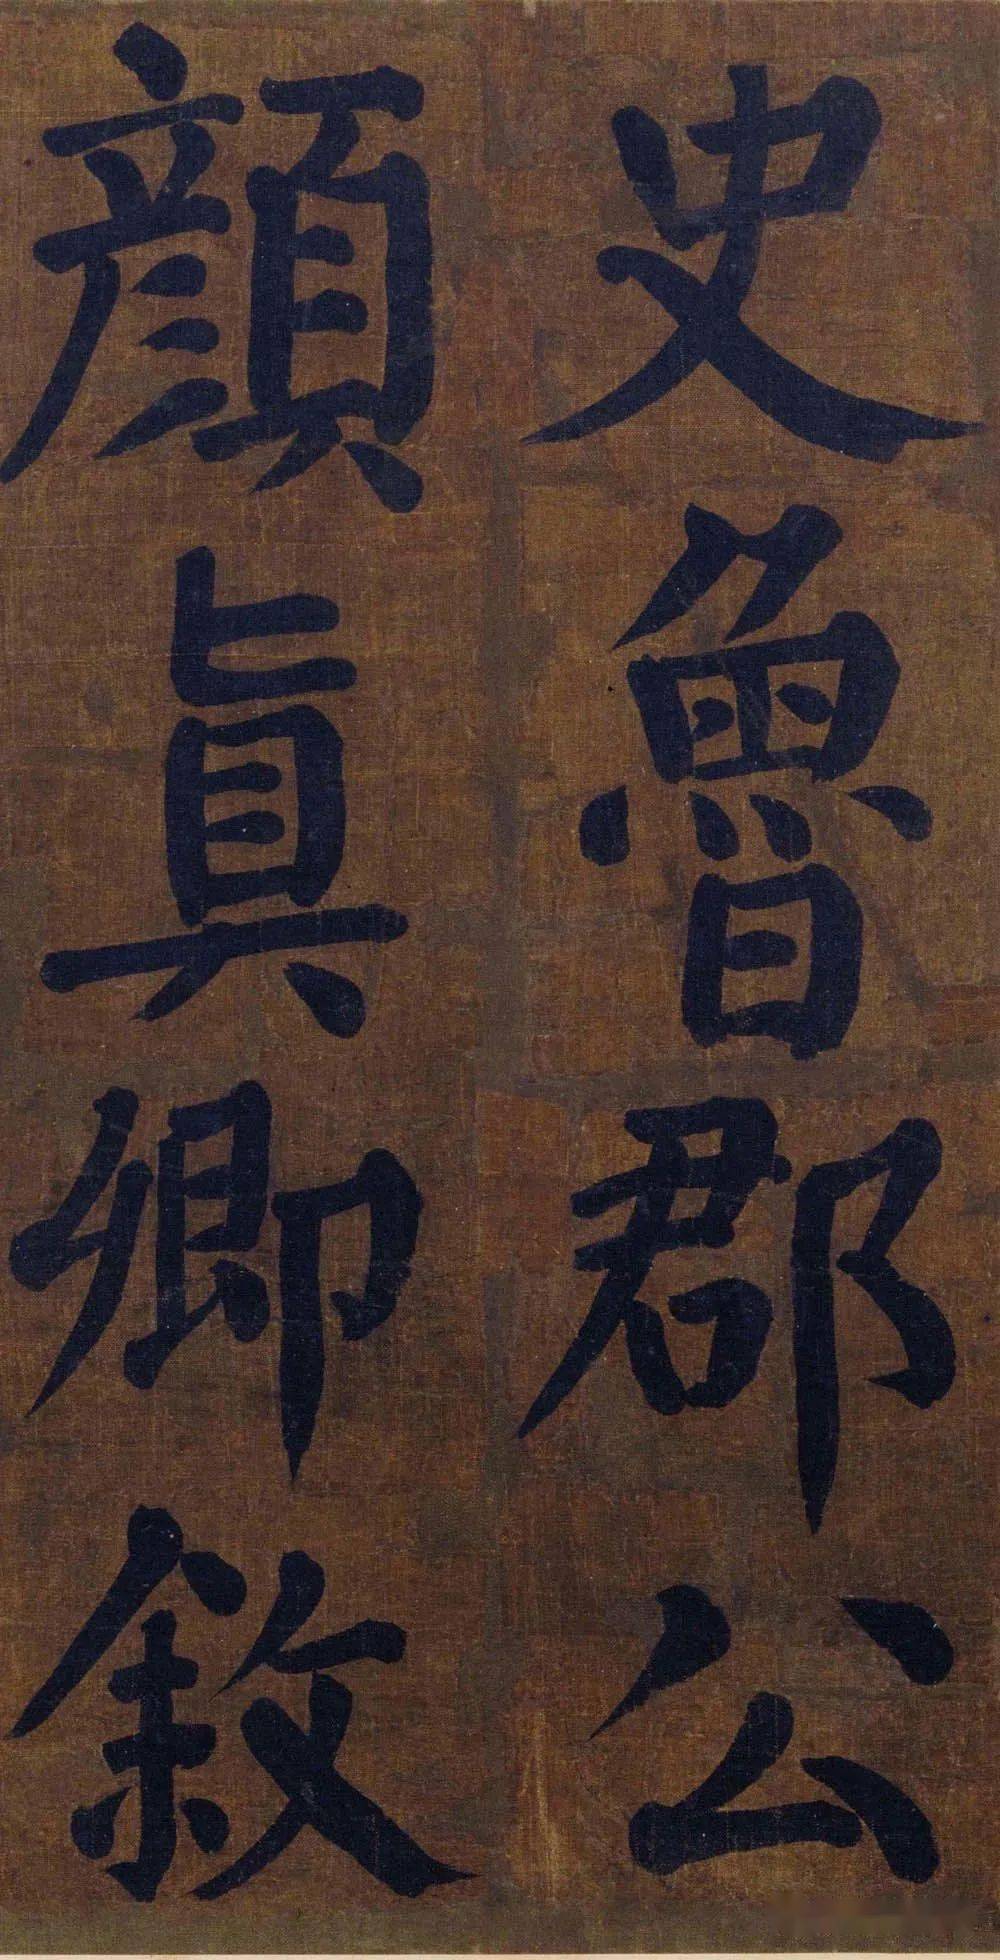 史魯郡公
顏眞卿敘